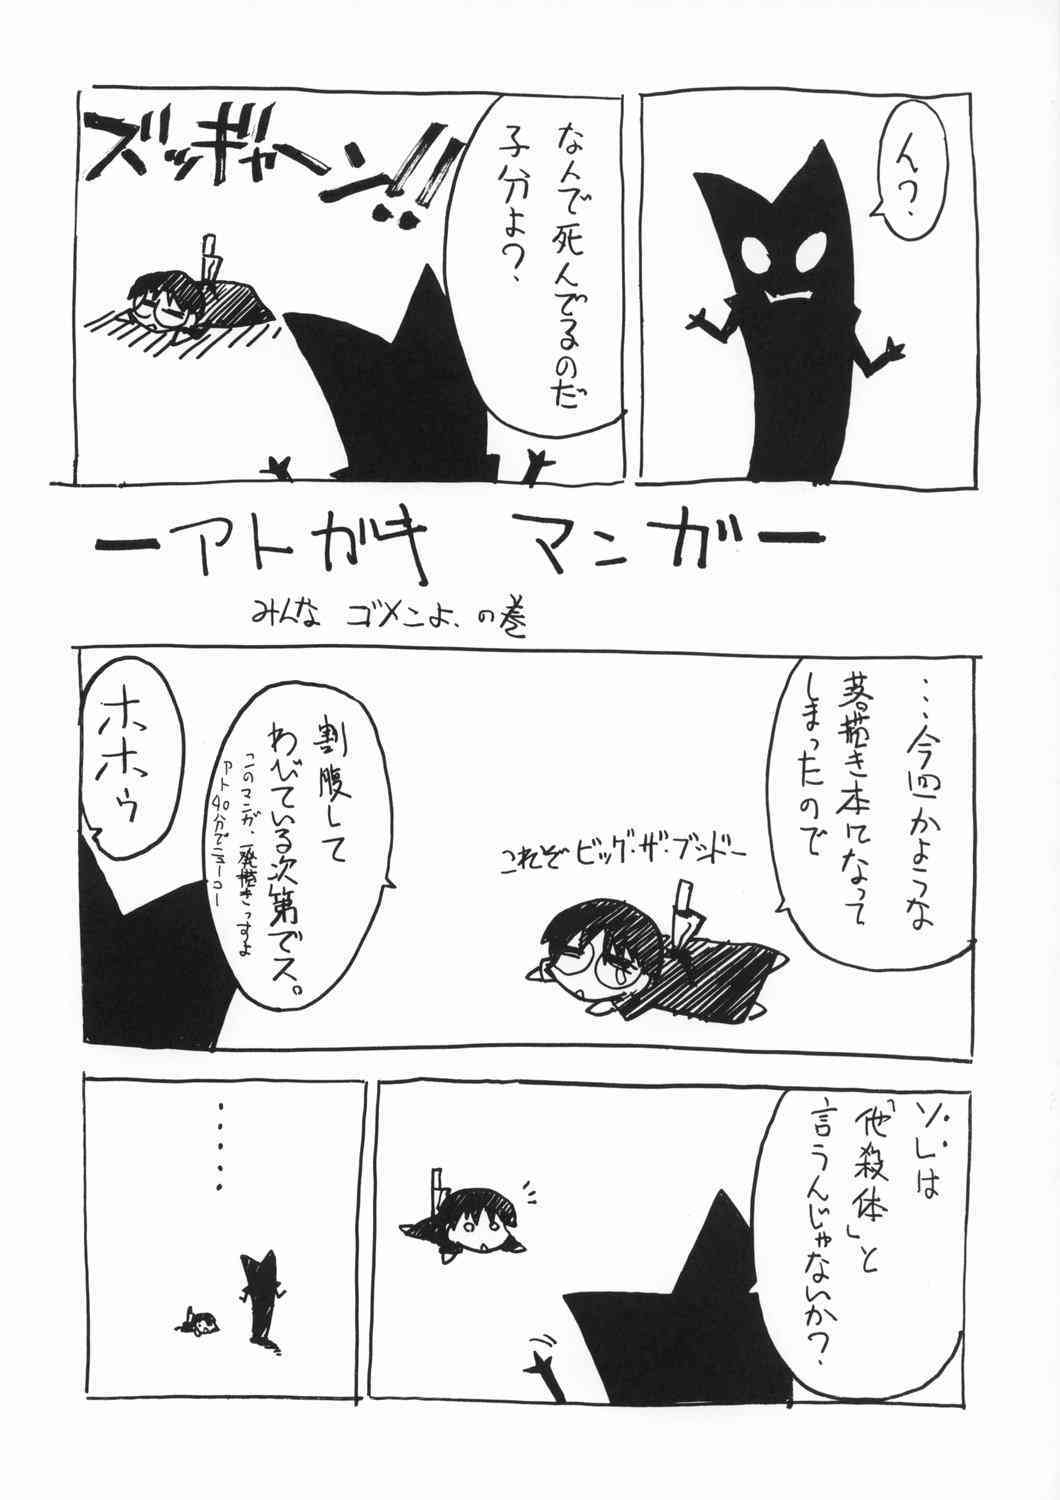 ん?
なんで死んでるのだ
子分よ?
ズッギャーン!!
ーアトガキ マンガー
みんな ゴメンよ、の巻
…今回かような
落描き本になって
しまったので
これぞビッグ・ザ・ブシドー
割腹して
わびている次第でス。
「このマンガ、一発描きっすよ
アト40分でニューコー
ホホゥ
ソレは
「他殺体」と
言うんじゃないか?
・・・・・